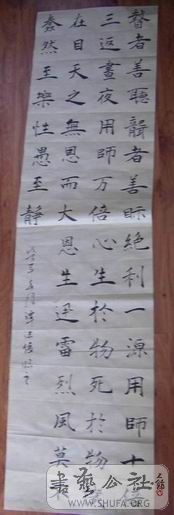 瞽者善聽聾者善眎絕利一源用師十倍
三返晝夜用師万倍心生於物死於物機
在目天之無恩而大恩生迅雷烈風莫不
蠢然至樂性愚至靜
書藝公社
WWW.SHUFA.ORG